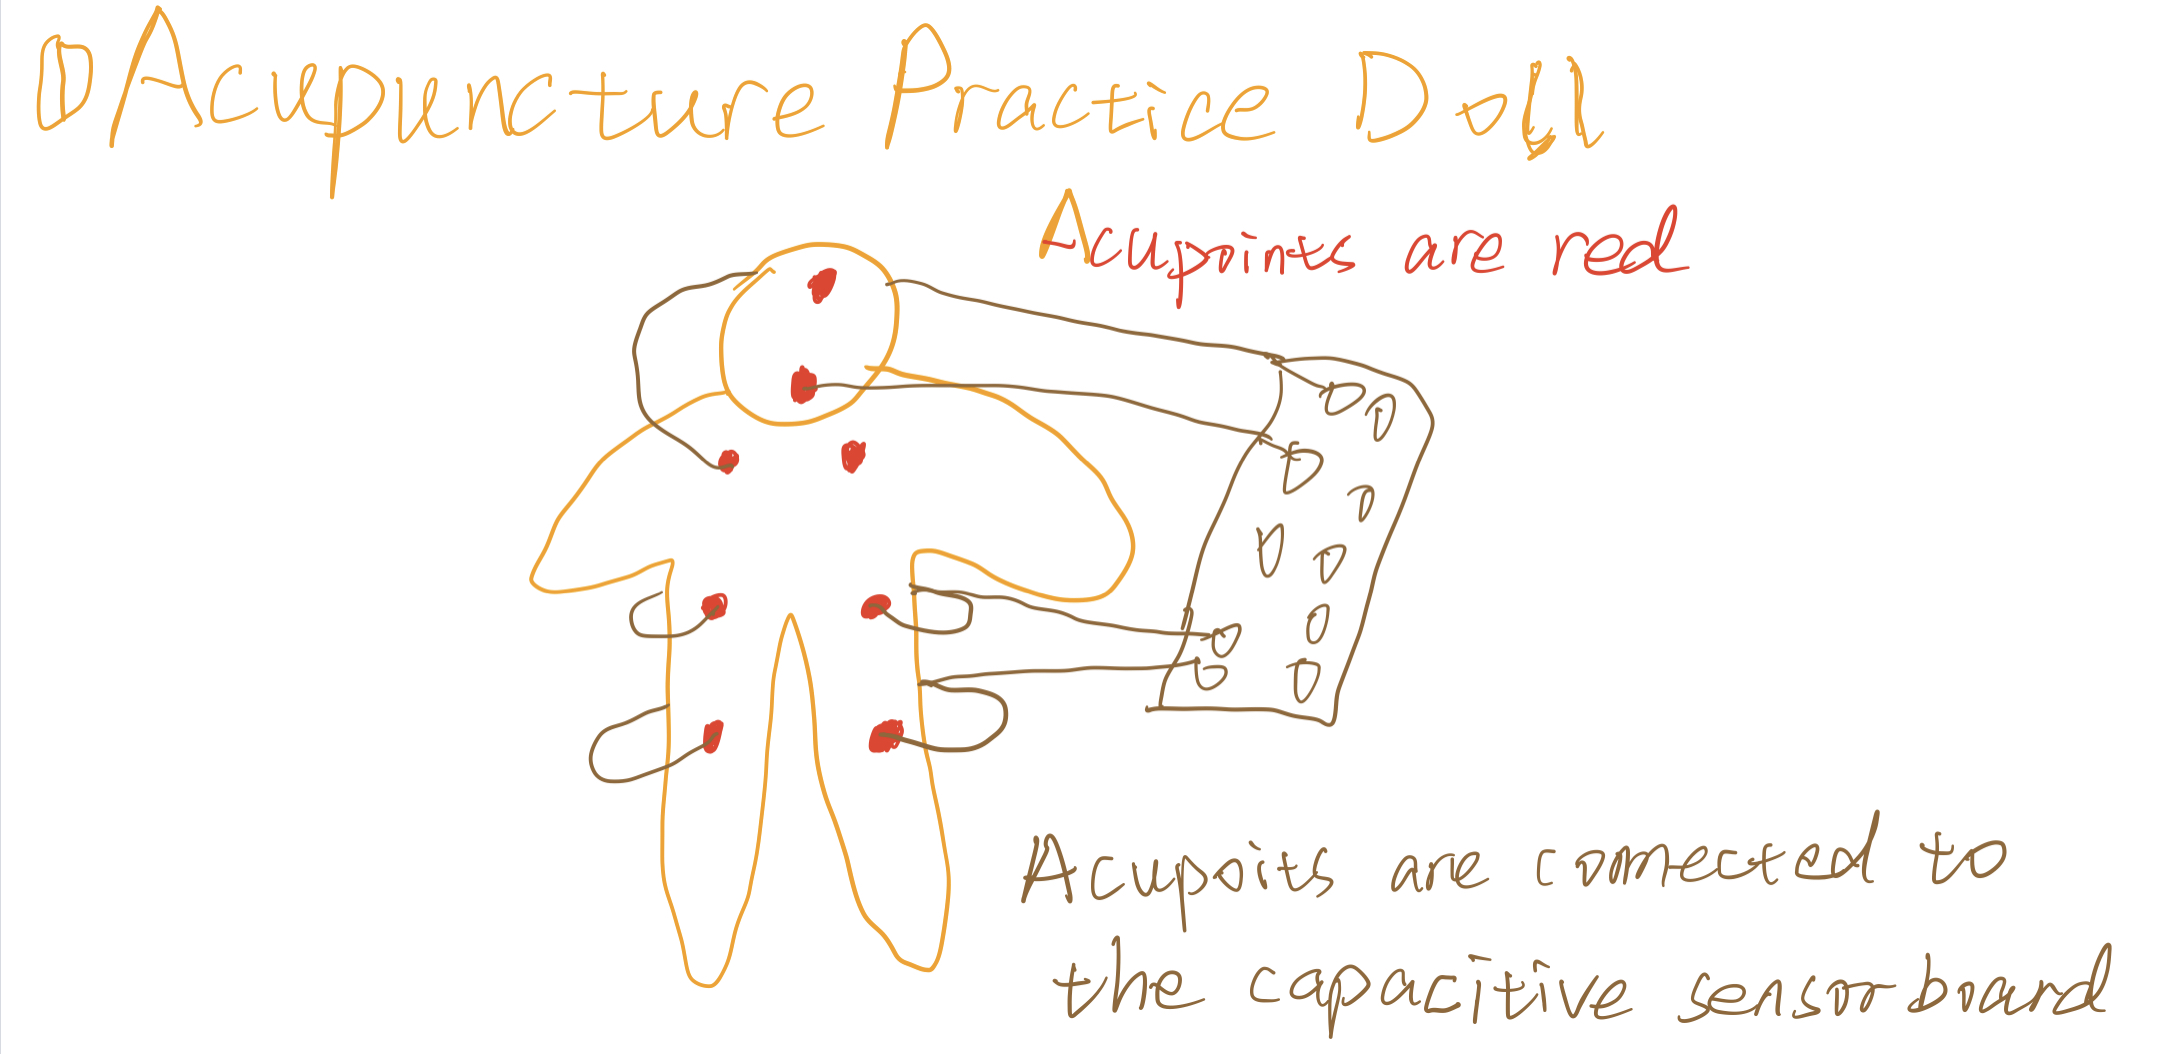 Acupuncture Practice Doll
Acupoints are red
Acupoits are connected to
the capacitive sensor board